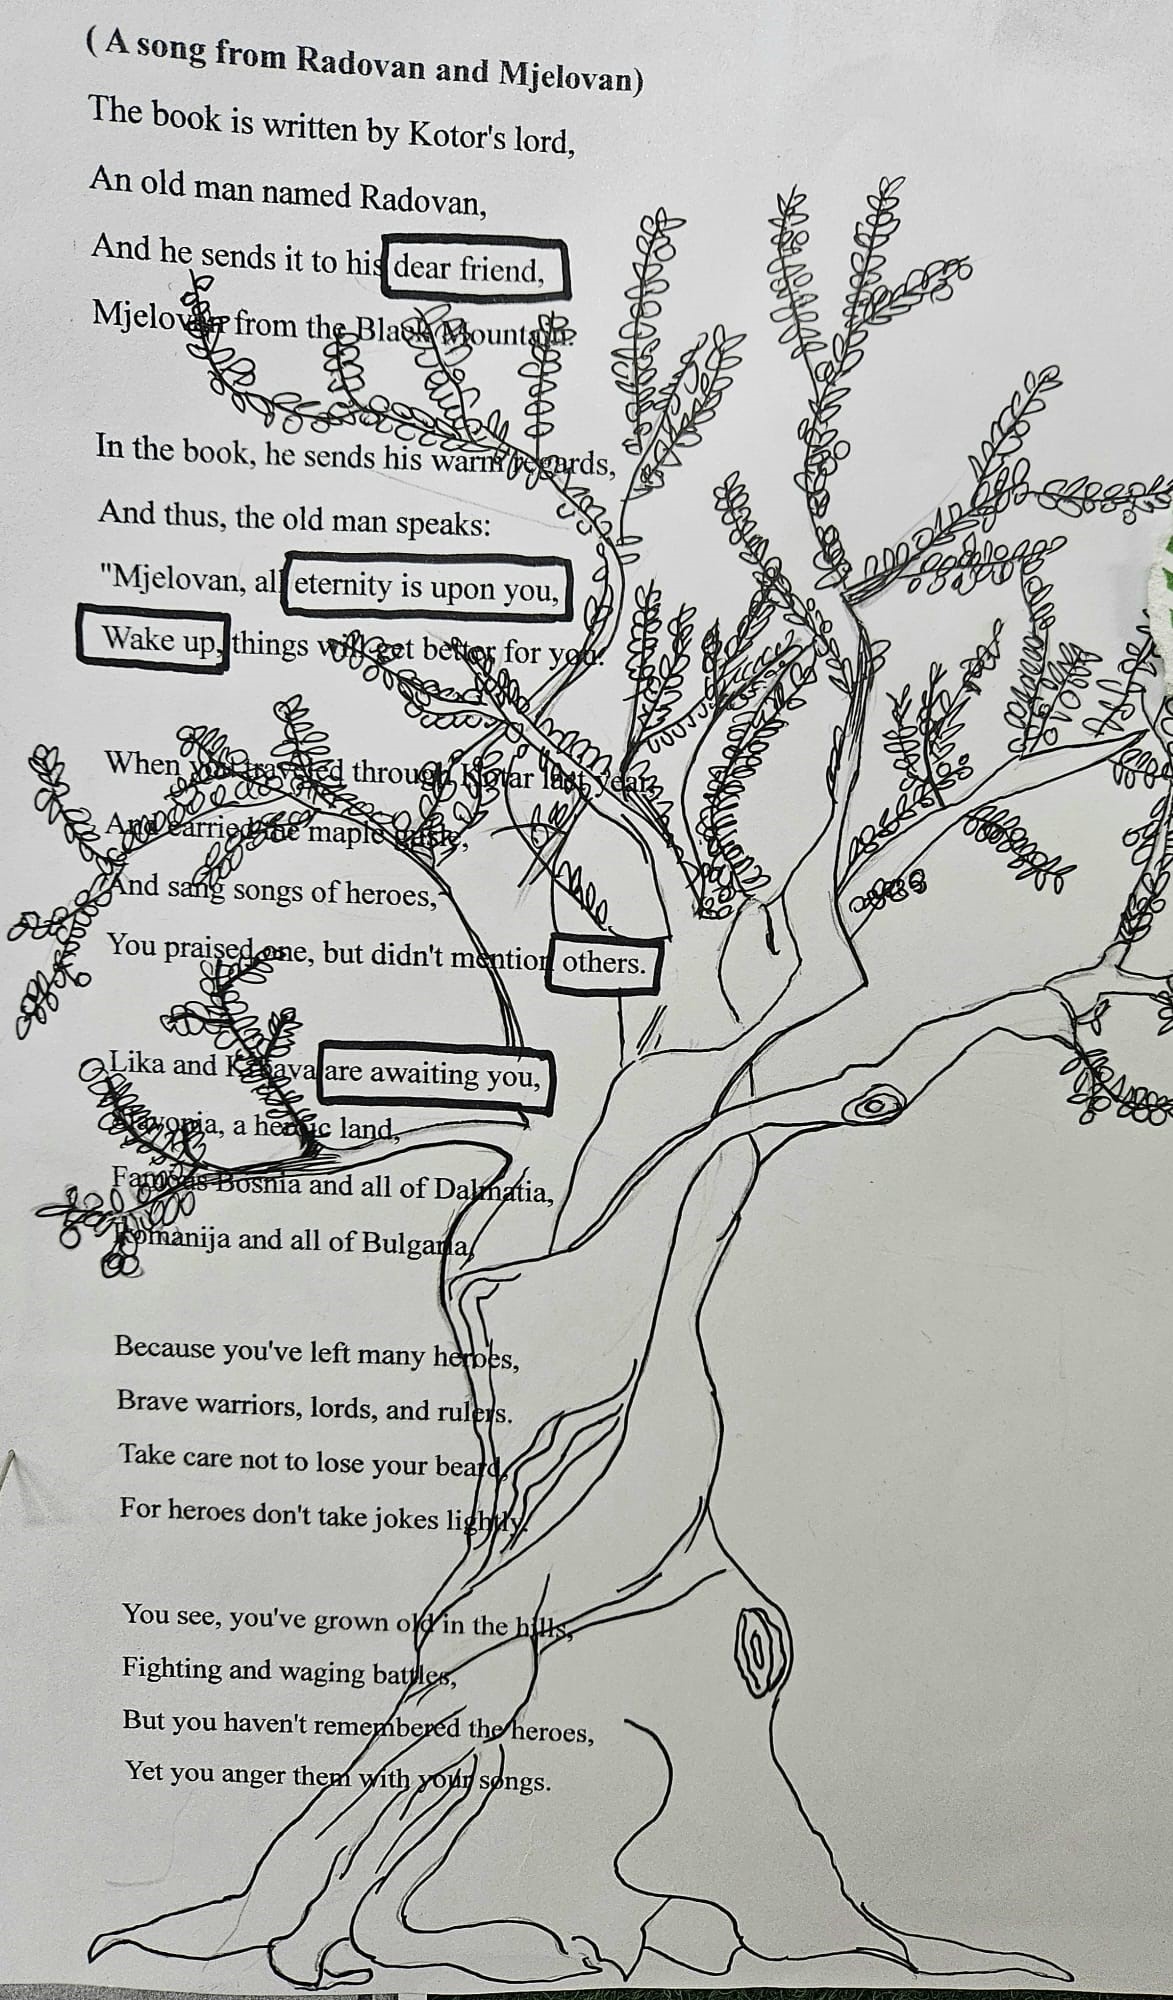 ( A song from Radovan and Mjelovan)
The book is written by Kotor's lord,
An old man named Radovan,
And he sends it to his dear friend,
Mjelovan from the Black Mountain.
In the book, he sends his warm regards,
And thus, the old man speaks:
"Mjelovan, all eternity is upon you,
Wake up, things will get better for you.
When you traveled through Kotar last year,
And carried the maple gusle,
And sang songs of heroes,
You praised one, but didn't mention others.
Lika and are awaiting you,
Slavonia, a heroic land,
Famous Bosnia and all of Dalmatia,
Romanija and all of Bulgaria,
Because you've left many heroes,
Brave warriors, lords, and rulers.
Take care not to lose your beard,
For heroes don't take jokes lightly.
You see, you've grown old in the hills,
Fighting and waging battles,
But you haven't remembered the heroes,
Yet you anger them with your songs.